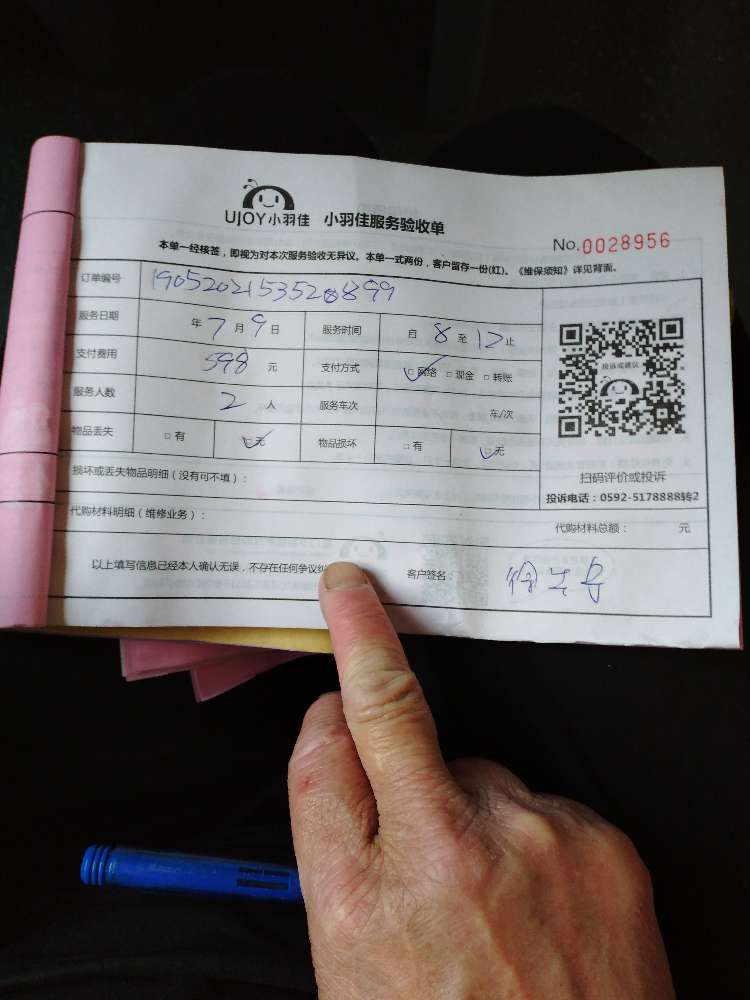 UJOY小羽佳 小羽佳服务验收单
No.0028956
本单一经核签，即视为对本次服务验收无异议。本单一式两份，客户留存一份(红)。《维保须知》详见背面。
订单编号 1905202153528899
服务日期 年 7 月 9 日 服务时间 自 8 至 12 止
支付费用 598 元 支付方式 □网络 □现金 □转账
服务人数 2 人 服务车次 车/次
物品丢失 □有 □无 物品损坏 □有 □无
投诉或建议
扫码评价或投诉
投诉电话：0592-5178888转2
损坏或丢失物品明细（没有可不填）：
代购材料明细（维修业务）： 代购材料总额： 元
以上填写信息已经本人确认无误，不存在任何争议 客户签名：